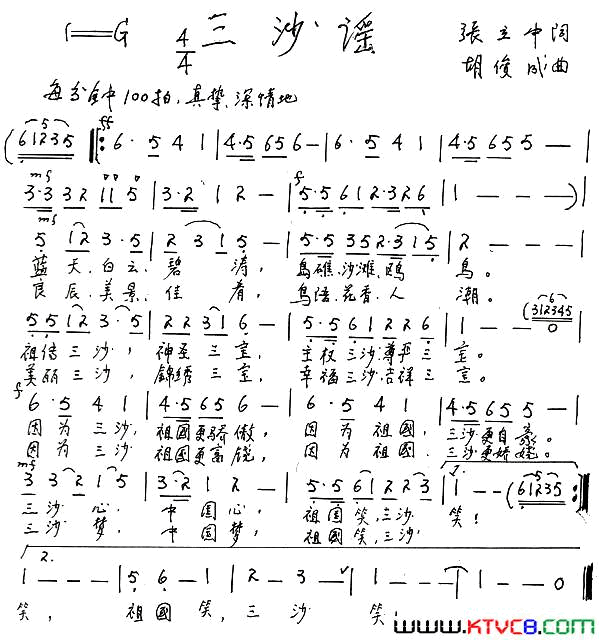 1=G 4/4 三沙谣 張立中词
胡俊成曲
每分钟中100拍,真挚、深情地
(61235 ff ‖: 6· 5 4 1 | 4·5 65 6 - | 6· 5 4 1 | 4·5 65 5 - |
mf 3·3 32 11 5 | 3·2 1 2 - | f 5·5 61 2·326 | 1 - - - )
mf 5 12 3·5 | 2 3 1 5 - | 5·5 35 2·315 | 2 - - - |
蓝天、白云、碧涛, 島礁、沙滩、鸥鳥。
良辰、美景、佳肴, 鸟语、花香、人潮。
55 12 3· 5 | 22 31 6 - | 5·5 61 22 6 | 1 - - (312345 0
祖传三沙,神圣三宝, 主权三沙,尊严三宝。
美丽三沙,錦绣三宝, 幸福三沙,吉祥三宝。
f 6· 5 4 1 | 4·5 65 6 - | 6· 5 4 1 | 4·5 65 5 - |
因为三沙,祖國更骄傲, 因为祖國,三沙更自豪。
因为三沙 祖國更富饶, 因为祖國,三沙更娇娆。
mf 3 3 2 1 5 | 3·2 1 2 - | 5·5 61 22 3 | 1. 1 - - (61235 :‖
三沙心,中国心, 祖国笑,三沙笑!
三沙梦,中国梦, 祖國笑,三沙
2.
1 - - - | 5· 6· - 1 | 2 - 3 - | 1 - - - | 1 - - 0 ‖
笑, 祖國笑,三沙笑!
www.KTVC8.com